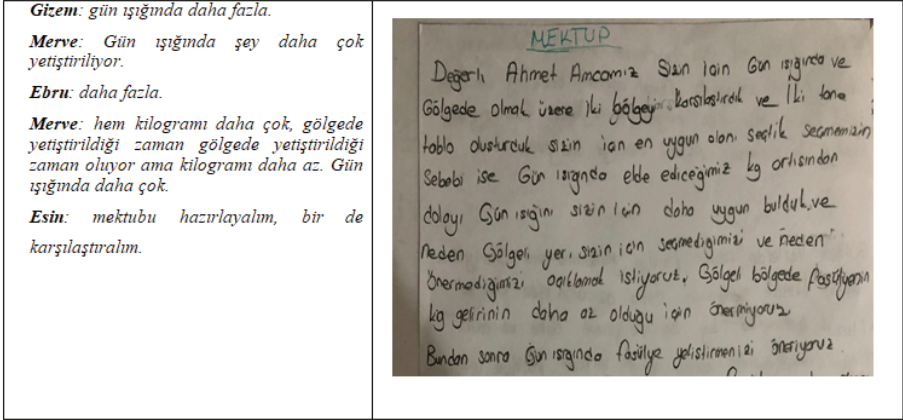 Gizem: gün ışığında daha fazla.
Merve: Gün ışığında şey daha çok
yetiştiriliyor.
Ebru: daha fazla.
Merve: hem kilogramı daha çok, gölgede
yetiştirildiği zaman gölgede yetiştirildiği
zaman oluyor ama kilogramı daha az. Gün
ışığında daha çok.
Esin: mektubu hazırlayalım, bir de
karşılaştıralım.
MEKTUP
Değerli Ahmet Amcamız Sizin için Gün ışığında ve
Gölgede olmak üzere iki bölgeyi karşılaştırdık ve iki tane
tablo oluşturduk sizin için en uygun olanı seçtik seçmemizin
Sebebi ise Gün ışığında elde edeceğimiz kg artışından
dolayı Gün ışığını sizin için daha uygun bulduk ve
neden Gölgeli yeri sizin için seçmediğimizi ve neden
Önermediğimizi açıklamak istiyoruz. Gölgeli bölgede fasülyenin
kg gelirinin daha az olduğu için önermiyoruz
Bundan sonra Gün ışığında fasülye yetiştirmenizi öneriyoruz.